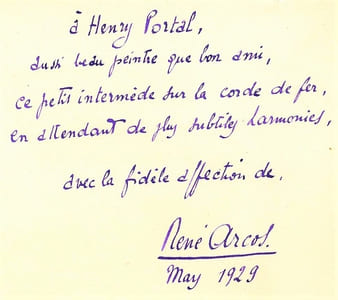 à Henry Portal,
aussi beau peintre que bon ami,
ce petit intermède sur la corde de fer,
en attendant de plus subtiles harmonies,
avec la fidèle affection de.
René Arcos.
May 1929